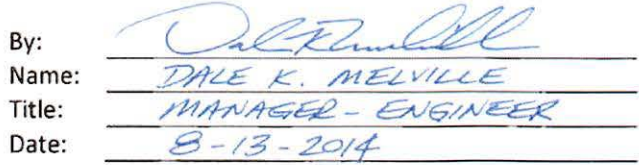 By:
Name: DALE K. MELVILLE
Title: MANAGER - ENGINEER
Date: 8-13-2014